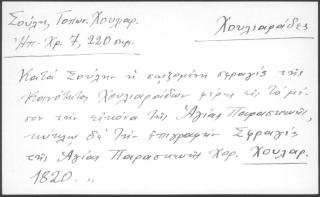 Σούλη, Τοπων. Χουλιαρ.
Ἠπ. Χρ. 7, 220 σημ.
Χουλιαράδες
Κατά Σούλην ἡ σωζομένη σφραγίς τῆς
Κοινότητος Χουλιαράδων φέρει εἰς τό μέ-
σον τήν εἰκόνα τῆς Ἁγίας Παρασκευῆς,
κύκλῳ δέ τήν ἐπιγραφήν Σφραγίς
τῆς Ἁγίας Παρασκευῆς χορ. Χουλιαρ.
1820. "